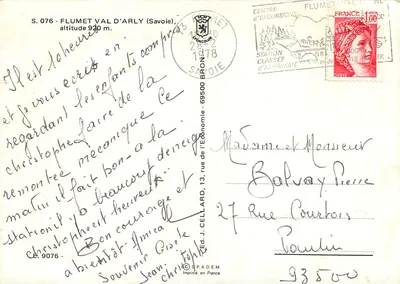 S. 076 - FLUMET VAL D'ARLY (Savoie)
altitude 920 m.
Il est 10 heures
et je vous écris en
regardant les enfants compris
christophe faire de la
remontée mécanique ce
matin il fait bon à la
station il a beaucoup de neige
christophe est heureux
Bon courage et
a bientôt amica
Souvenir Gisèle
Jean
christophe
C. 9076
Éd. J. CELLARD, 13, rue de l'Economie - 69500 BRON
© SPADEM
Imprimé en France
FLUMET
1978
SAVOIE
CENTRE
D'EXCURSIONS
STATION
CLASSÉE
FLUMET
1,00
Madame et Monsieur
Balvay Pierre
27 Rue Courtois
Pantin
93500